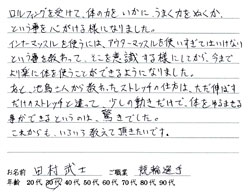 ロルフィングを受けて、体の力をいかに、うまく力をぬくか、
という事を心がける様になりました。
インナーマッスルを使うには、アウターマッスルを使いすぎてはいけない
という事を教わって、そこを意識する様にしてから、今まで
より楽に体を使うことができるようになりました。
あと、池島さんから教わったストレッチの仕方は、ただ伸ばす
だけのストレッチと違って、少しの動きだけで、体をゆるませる
事ができるというのは、驚きでした。
これからも、いろいろ教えて頂きたいです。
お名前 田村武士 ご職業 競輪選手
年齢 20代 30代 40代 50代 60代 70代 80代 90代